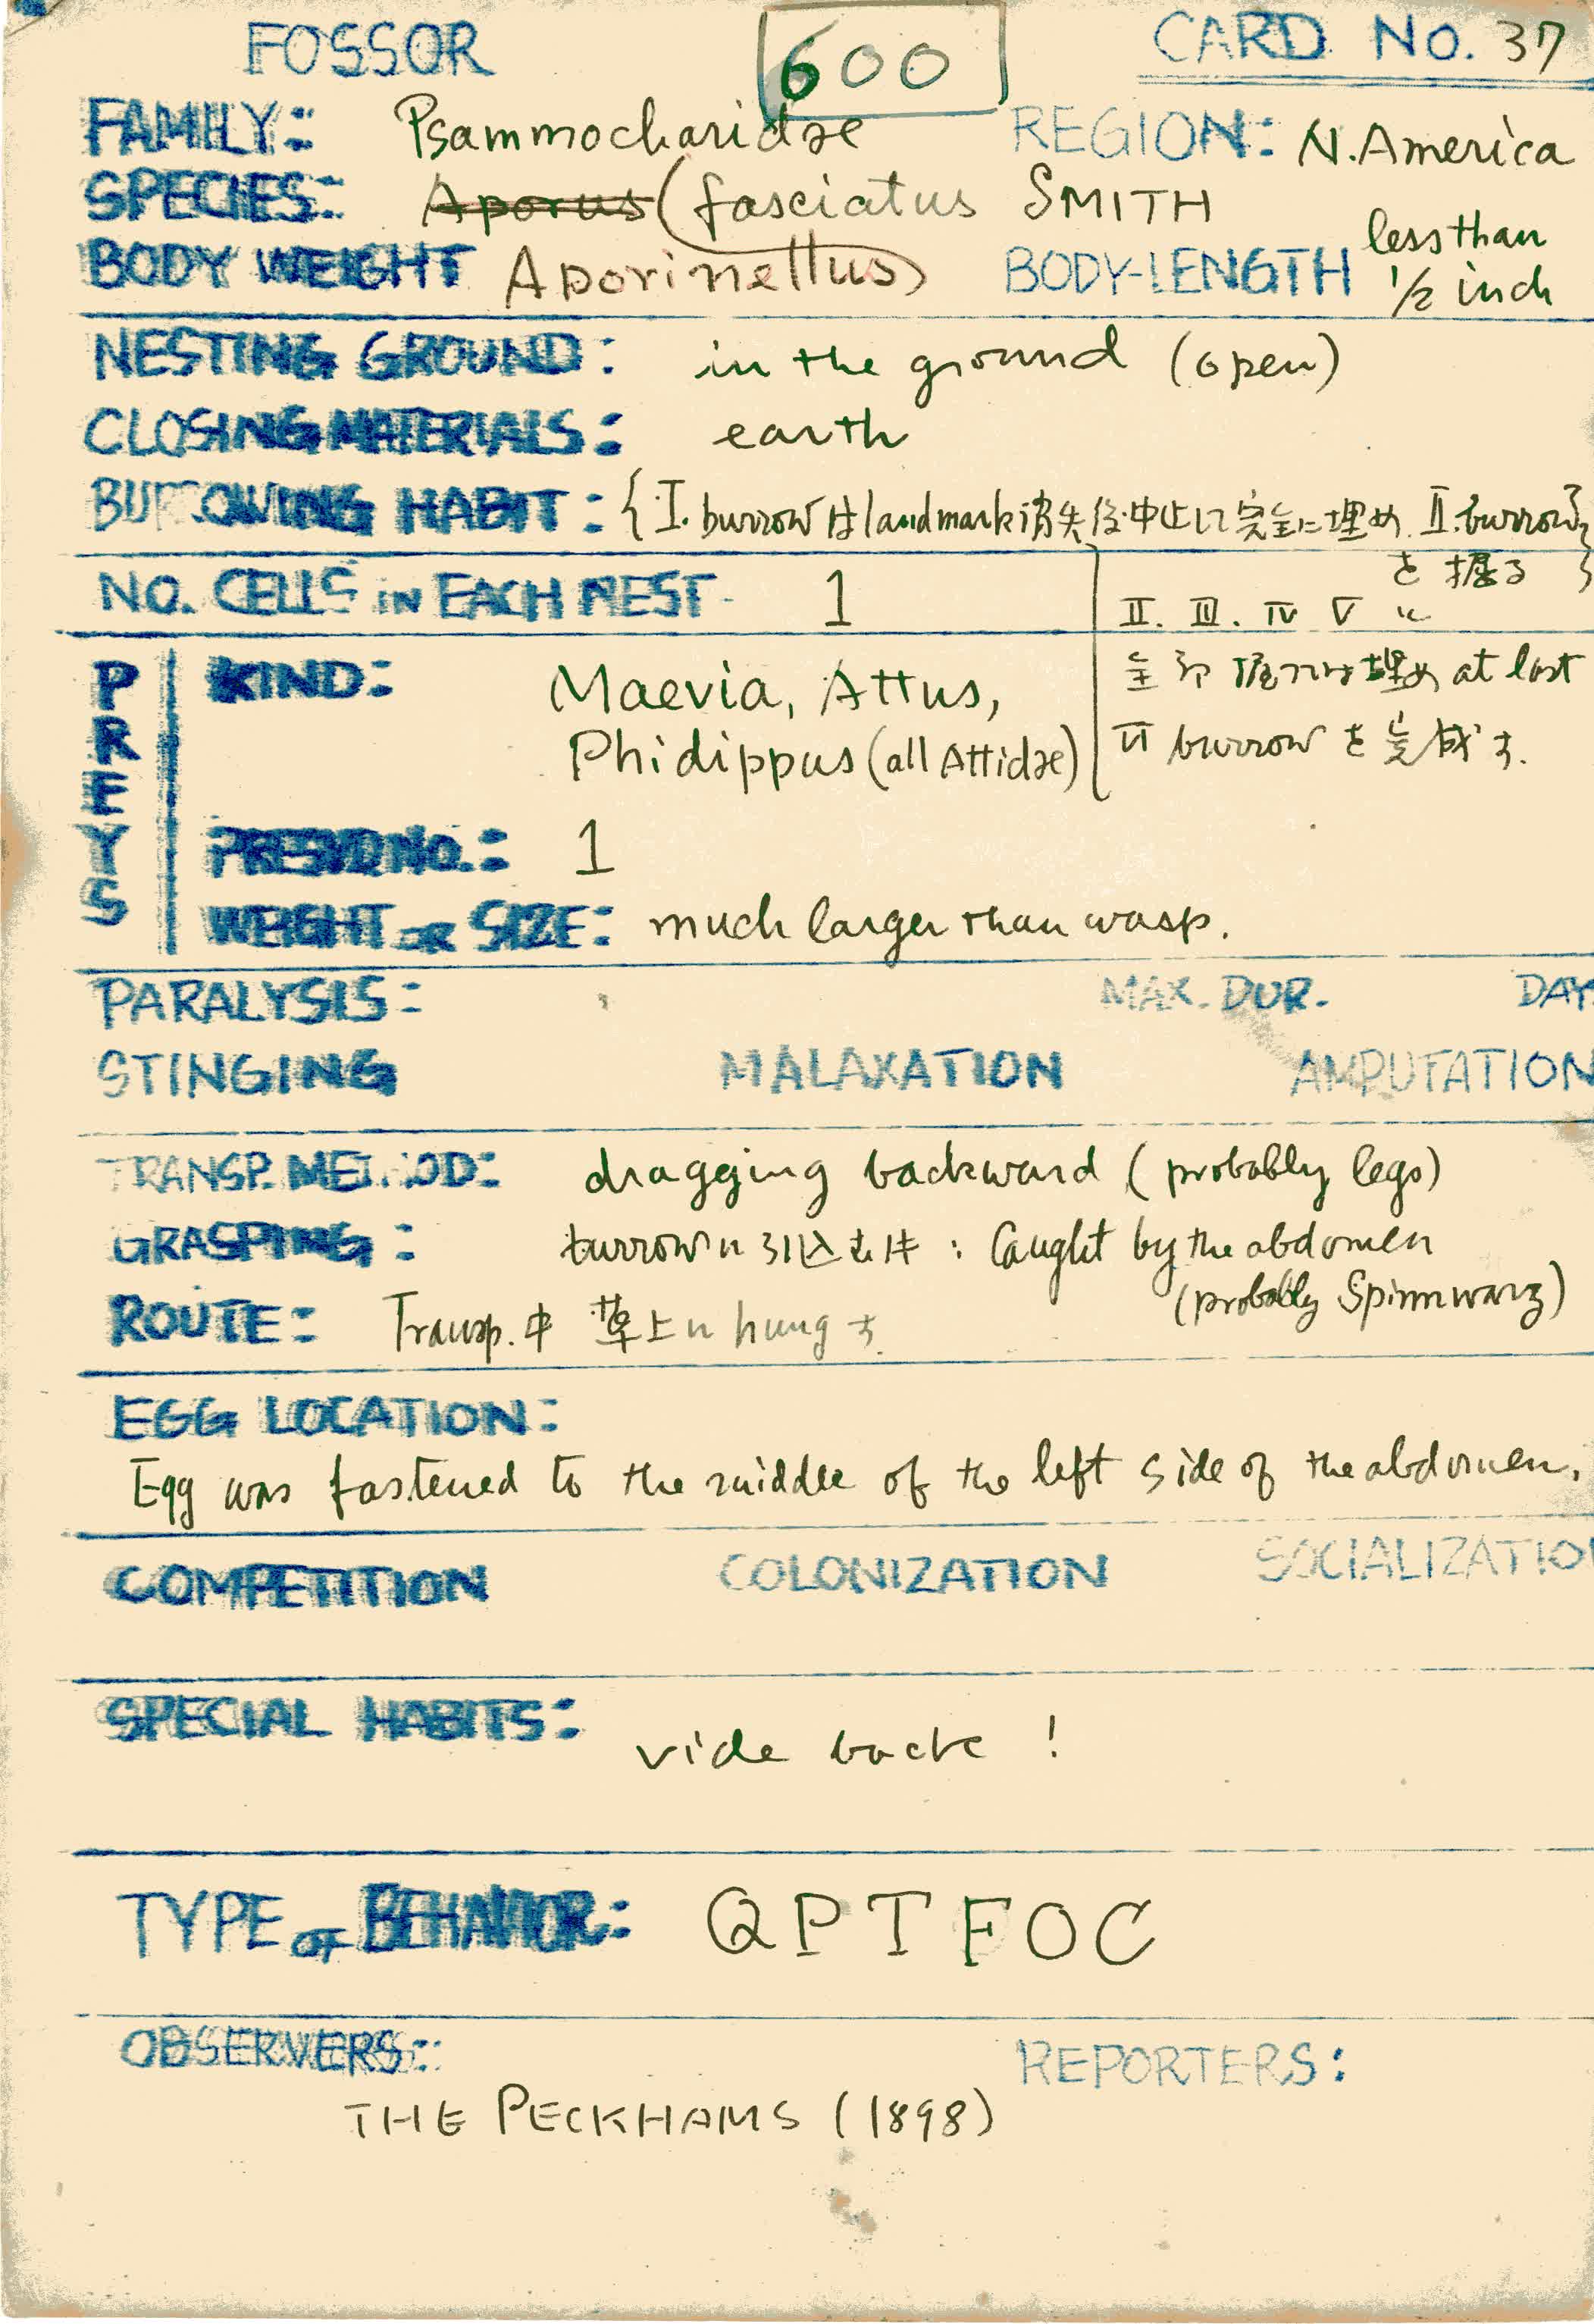 FOSSOR
600
CARD No. 37
FAMILY: Psammocharidae REGION: N. America
SPECIES: Aporus (fasciatus SMITH
BODY WEIGHT Aporinellus) BODY-LENGTH less than 1/2 inch
NESTING GROUND: in the ground (open)
CLOSING MATERIALS: earth
BURROWING HABIT: {I. burrowはlandmark消失後中止して完全に埋め、II. burrow
を掘る}
NO. CELLS IN EACH NEST 1
II. III. IV V 〃
全部掘っては埋め at last
VI burrow を完成す.
PREYS
KIND: Maevia, Attus,
Phidippus (all Attidae)
PRESVD NO.: 1
WEIGHT OR SIZE: much larger than wasp.
PARALYSIS: MAX. DUR. DAY
STINGING MALAXATION AMPUTATION
TRANSP. METHOD: dragging backward (probably legs)
GRASPING: burrowに引込む時: Caught by the abdomen
(probably Spinnwarz)
ROUTE: Transp.中 草上に hung す.
EGG LOCATION:
Egg was fastened to the middle of the left side of the abdomen.
COMPETITION COLONIZATION SOCIALIZATIO
SPECIAL HABITS: vide back !
TYPE OF BEHAVIOR: QPTFOC
OBSERVERS: REPORTERS:
THE PECKHAMS (1898)